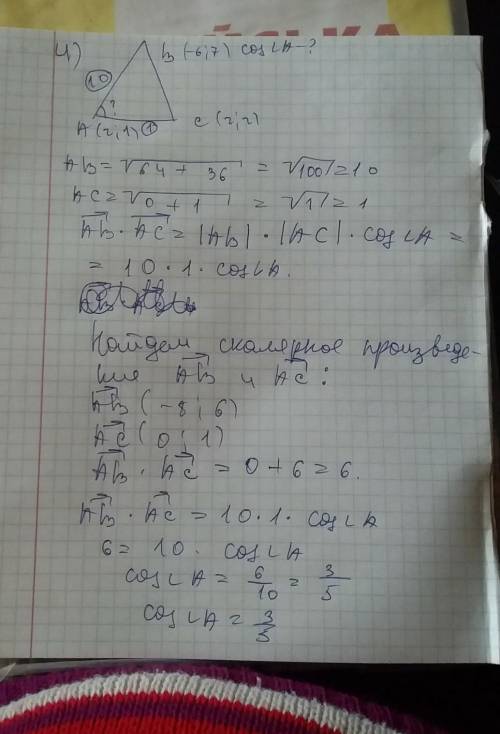 4) B (-6;7) cos∠A-?
10
?
A (2;1) 1 C (2;2)
AB = √64 + 36 = √100 = 10
AC = √0 + 1 = √1 = 1
AB · AC = |AB| · |AC| · cos∠A =
= 10 · 1 · cos∠A.
Найдем скалярное произведе-
ние AB и AC :
AB (-8; 6)
AC ( 0; 1)
AB · AC = 0 + 6 = 6.
AB · AC = 10 · 1 · cos∠A
6 = 10 · cos∠A
cos∠A = 6/10 = 3/5
cos∠A = 3/5